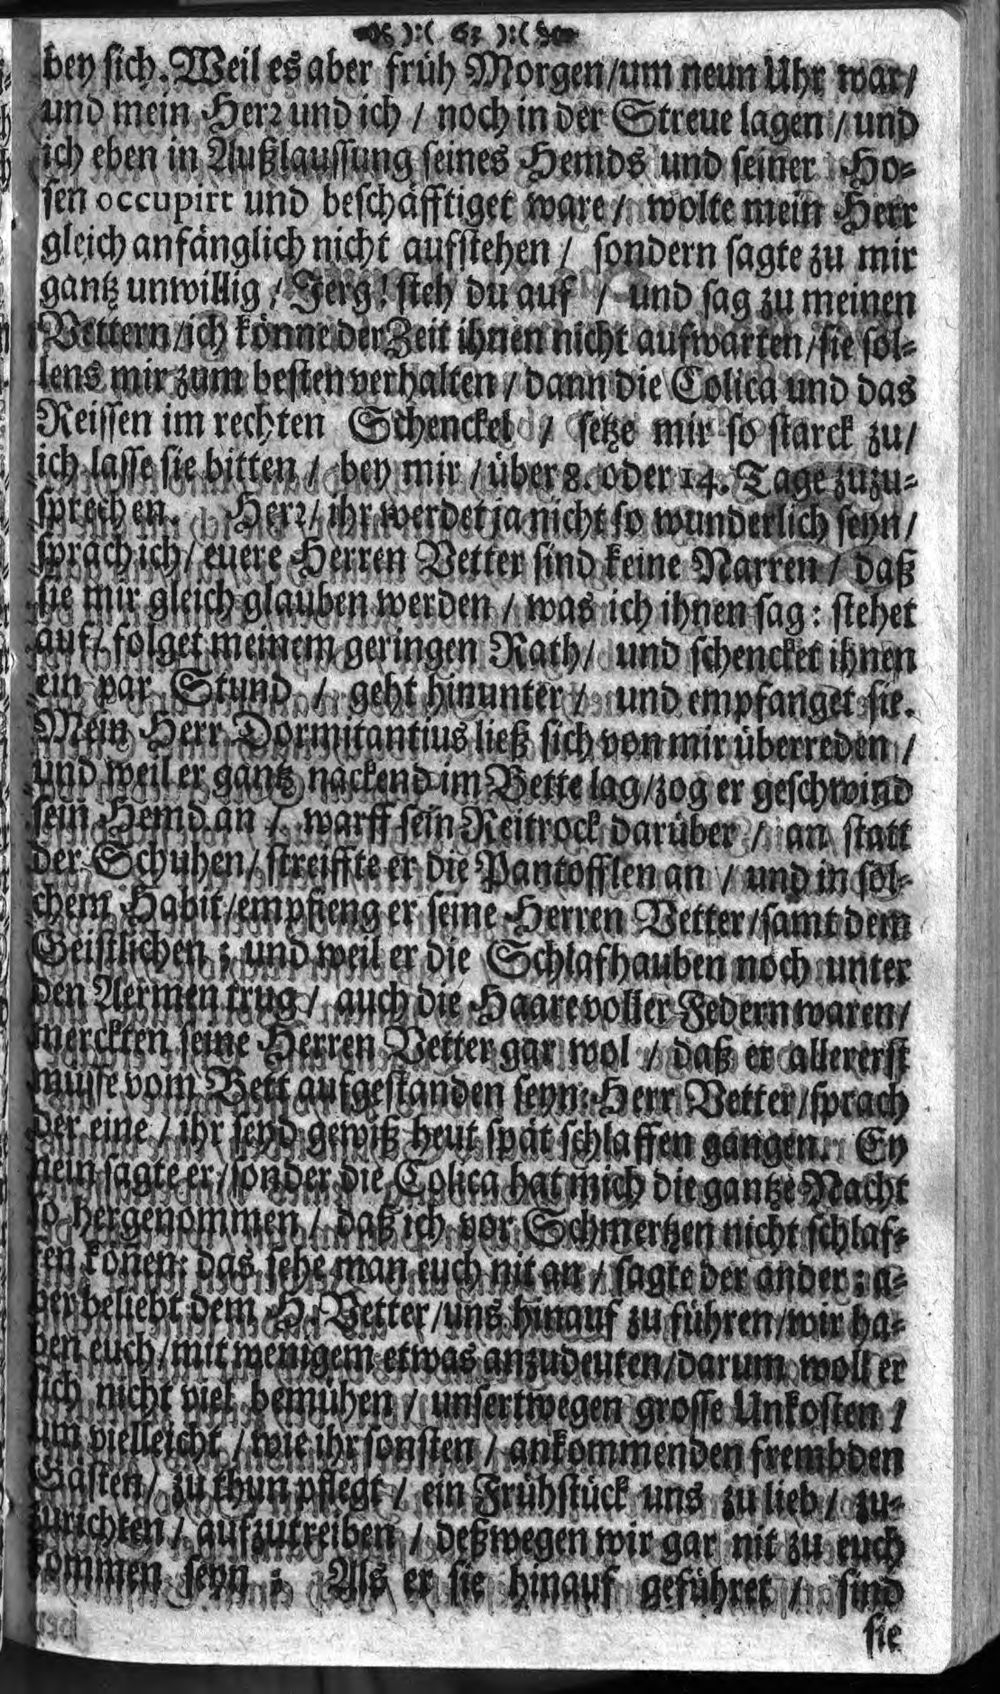 ):( 63 ):(
bey sich. Weil es aber früh Morgen/um neun Uhr war/
und mein Herꝛ und ich / noch in der Streue lagen / und
ich eben in Außlaussung seines Hemds und seiner Ho-
sen occupirt und beschäfftiget ware / wolte mein Herr
gleich anfänglich nicht aufstehen / sondern sagte zu mir
gantz unwillig / Jerg! steh du auf / und sag zu meinen
Vettern/ich könne der Zeit ihnen nicht aufwarten/sie sol-
lens mir zum besten verhalten / dann die Colica und das
Reissen im rechten Schenckel / setze mir so starck zu/
ich lasse sie bitten / bey mir / über 8. oder 14. Tage zuzu-
sprechen. Herꝛ/ ihr werdet ja nicht so wunderlich seyn/
sprach ich/ euere Herren Vetter sind keine Narren / daß
sie mir gleich glauben werden / was ich ihnen sag: stehet
auf/ folget meinem geringen Rath/ und schencket ihnen
ein par Stund / geht hinunter / und empfanget sie.
Mein Herr Dormitantius ließ sich von mir überreden /
und weil er gantz nackend im Bette lag/zog er geschwind
sein Hemd an / warff sein Reitrock darüber / an statt
der Schuhen/ streiffte er die Pantofflen an / und in sol-
chem Habit/empfieng er seine Herren Vetter/samt dem
Geistlichen ; und weil er die Schlafhauben noch unter
den Aermen trug / auch die Haare voller Federn waren/
merckten seine Herren Vetter gar wol / daß er allererst
müsse vom Bett aufgestanden seyn: Herr Vetter/sprach
der eine / ihr seyd gewiß heut spät schlaffen gangen. Ey
nein sagte er/sonder die Colica hat mich die gantze Nacht
so hergenommen / daß ich vor Schmertzen nicht schlaf-
fen köñen: das sehe man euch nit an / sagte der ander ; a-
ber beliebt dem H. Vetter/uns hinauf zu führen/wir ha-
ben euch/mit wenigem etwas anzudeuten/darum woll er
sich nicht viel bemühen / unsertwegen grosse Unkosten /
um vielleicht / wie ihr sonsten / ankommenden frembden
Gästen/ zu thun pflegt / ein Frühstück uns zu lieb / zu-
zurichten / aufzutreiben / deßwegen wir gar nit zu euch
kommen seyn ; Als er sie hinauf geführet / sind
sie